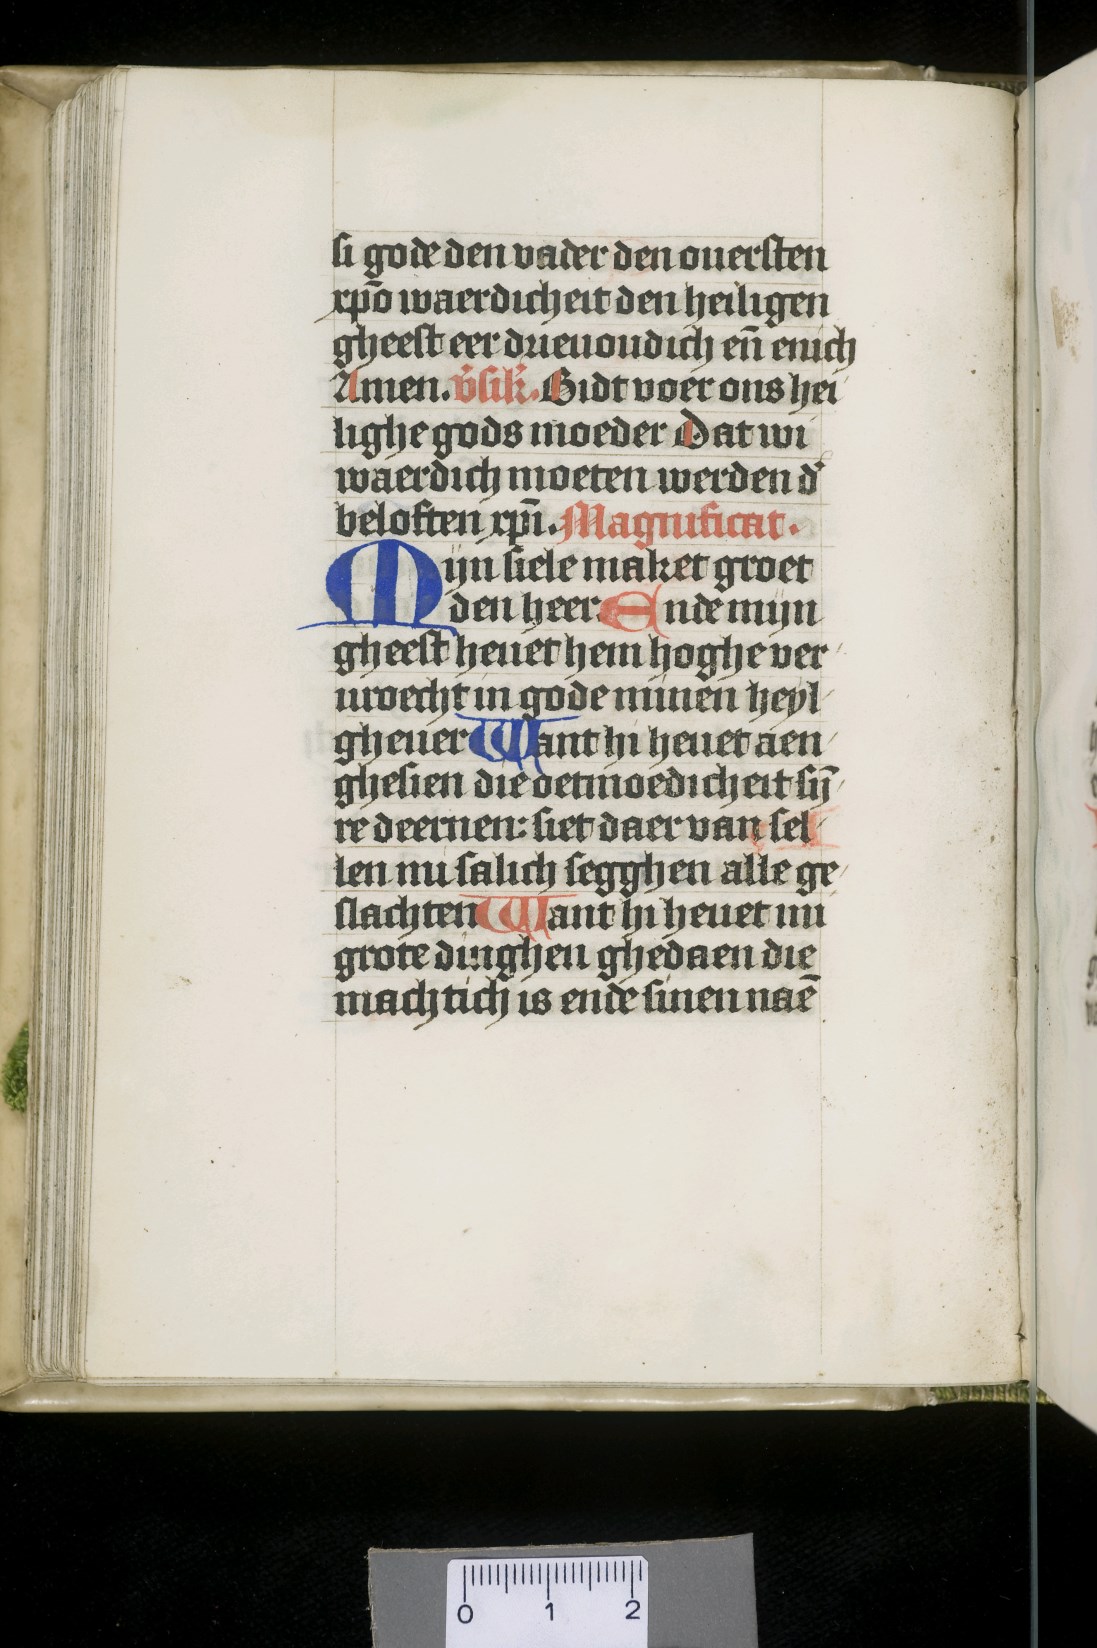 si gode den vader den ouersten
xp̄o waerdicheit den heiligen
gheest eer drieuoudich en̄ enich
Amen. v̓sik̓. Bidt voer ons hei
lighe gods moeder Dat wi
waerdich moeten werden d̓
beloften xp̄i. Magnificat.
Mijn siele maket groet
den heer Ende mijn
gheest heuet hem hoghe ver
uroecht in gode minen heyl
gheuer Want hi heuet aen
ghesien die oetmoedicheit sij̄
re deernen: siet daer van sel
len mi salich segghen alle ge
slachten Want hi heuet mi
grote dinghen ghedaen die
machtich is ende sinen naē
0 1 2